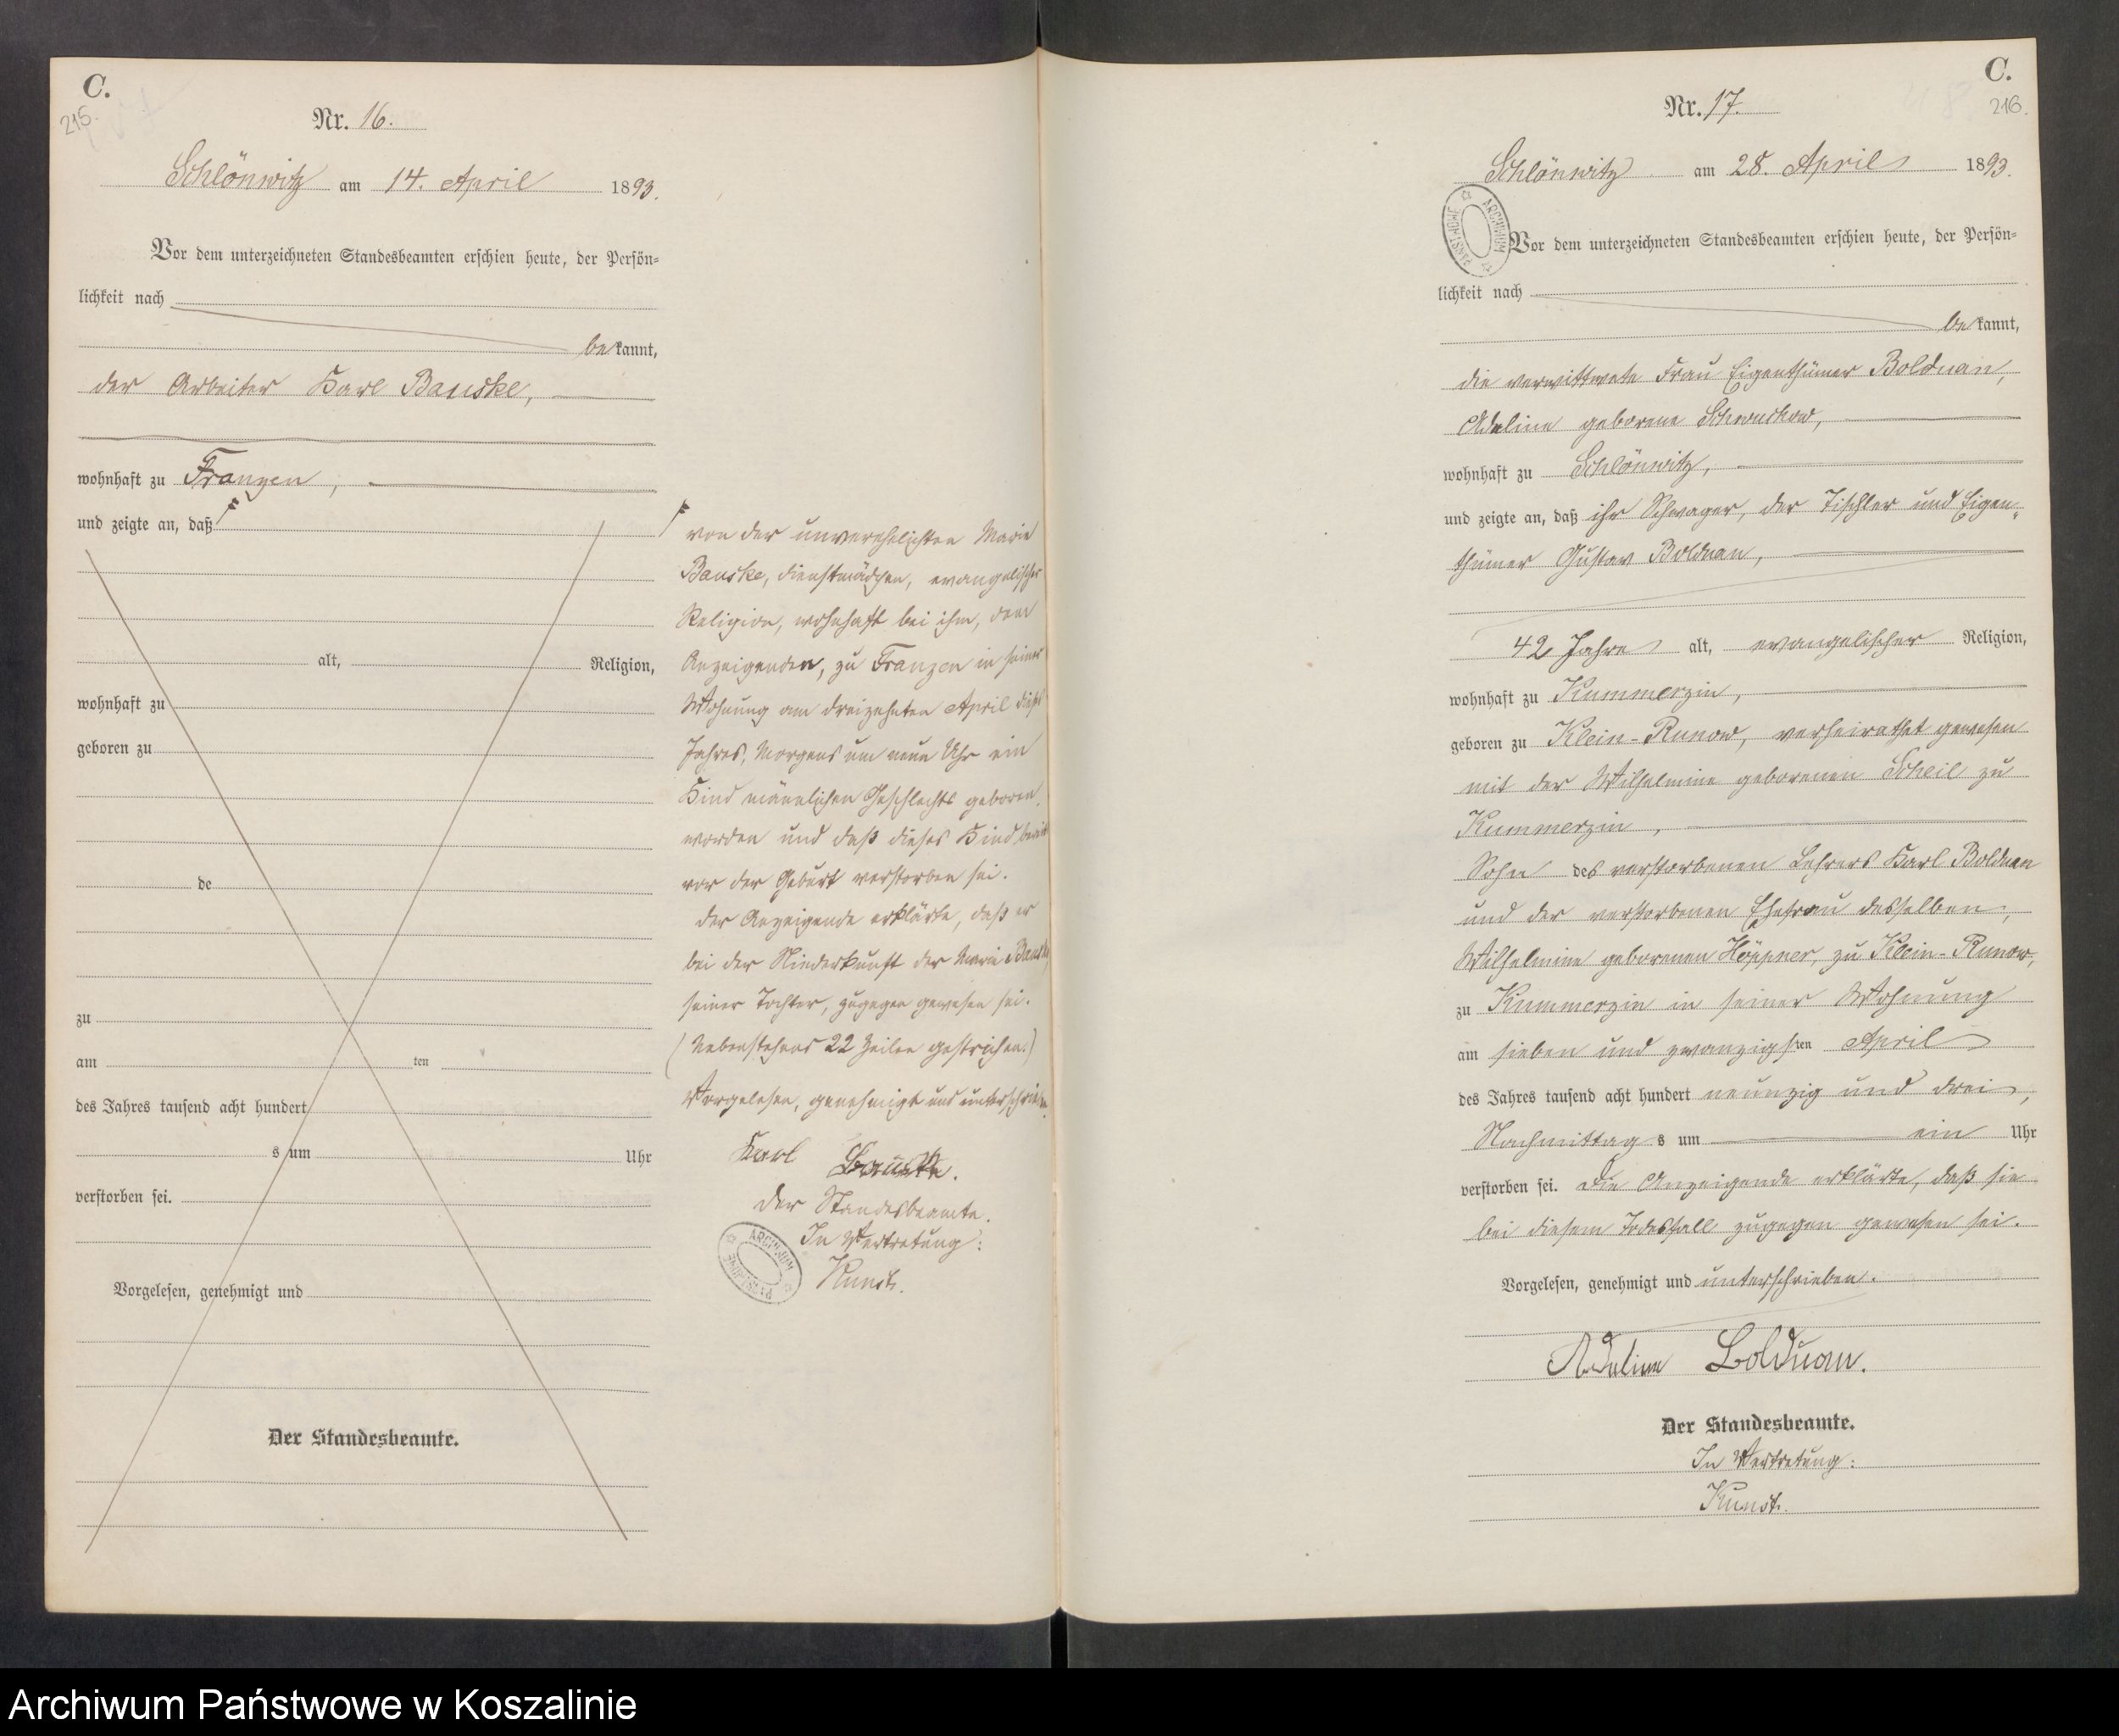 C.
215.
Nr. 16.
Schlönwitz am 14. April 1893.
Vor dem unterzeichneten Standesbeamten erschien heute, der Persön=
lichkeit nach
bekannt,
der Arbeiter Karl Bauske,
wohnhaft zu Franzen,
und zeigte an, daß
alt, Religion,
wohnhaft zu
geboren zu
de
zu
am ten
des Jahres tausend acht hundert
s um Uhr
verstorben sei.
Vorgelesen, genehmigt und
Der Standesbeamte.
von der unverehelichten Marie
Bauske, Dienstmädchen, evangelischer
Religion, wohnhaft bei ihm, dem
Anzeigenden, zu Franzen in seiner
Wohnung am dreizehnten April dieses
Jahres, Morgens um neun Uhr ein
Kind männlichen Geschlechts geboren
worden und daß dieses Kind bereits
vor der Geburt verstorben sei.
Der Anzeigende erklärte, daß er
bei der Niederkunft der Marie Bauske,
seiner Tochter, zugegen gewesen sei.
(Nebenstehend 22 Zeilen gestrichen.)
Vorgelesen, genehmigt und unterschrieben.
Karl Bauske.
Der Standesbeamte.
In Vertretung:
Kunst.
ARCHIWUM PAŃSTWOWE
C.
216.
Nr. 17.
Schlönwitz am 28. April 1893.
ARCHIWUM PAŃSTWOWE
Vor dem unterzeichneten Standesbeamten erschien heute, der Persön=
lichkeit nach
bekannt,
die verwittwete Frau Eigenthümer Bolduan,
Adeline geborene Schwuchow,
wohnhaft zu Schlönwitz,
und zeigte an, daß ihr Schwager, der Tischler und Eigen=
thümer Gustav Bolduan,
42 Jahre alt, evangelischer Religion,
wohnhaft zu Kummerzin,
geboren zu Klein-Runow, verheirathet gewesen
mit der Wilhelmine geborenen Scheil zu
Kummerzin,
Sohn des verstorbenen Lehrers Karl Bolduan
und der verstorbenen Ehefrau desselben,
Wilhelmine geborenen Höppner, zu Klein-Runow,
zu Kummerzin in seiner Wohnung
am sieben und zwanzigsten April
des Jahres tausend acht hundert neunzig und drei,
Nachmittags um ein Uhr
verstorben sei. Die Anzeigende erklärte, daß sie
bei diesem Todesfall zugegen gewesen sei.
Vorgelesen, genehmigt und unterschrieben.
Adeline Bolduan.
Der Standesbeamte.
In Vertretung:
Kunst.
Archiwum Państwowe w Koszalinie